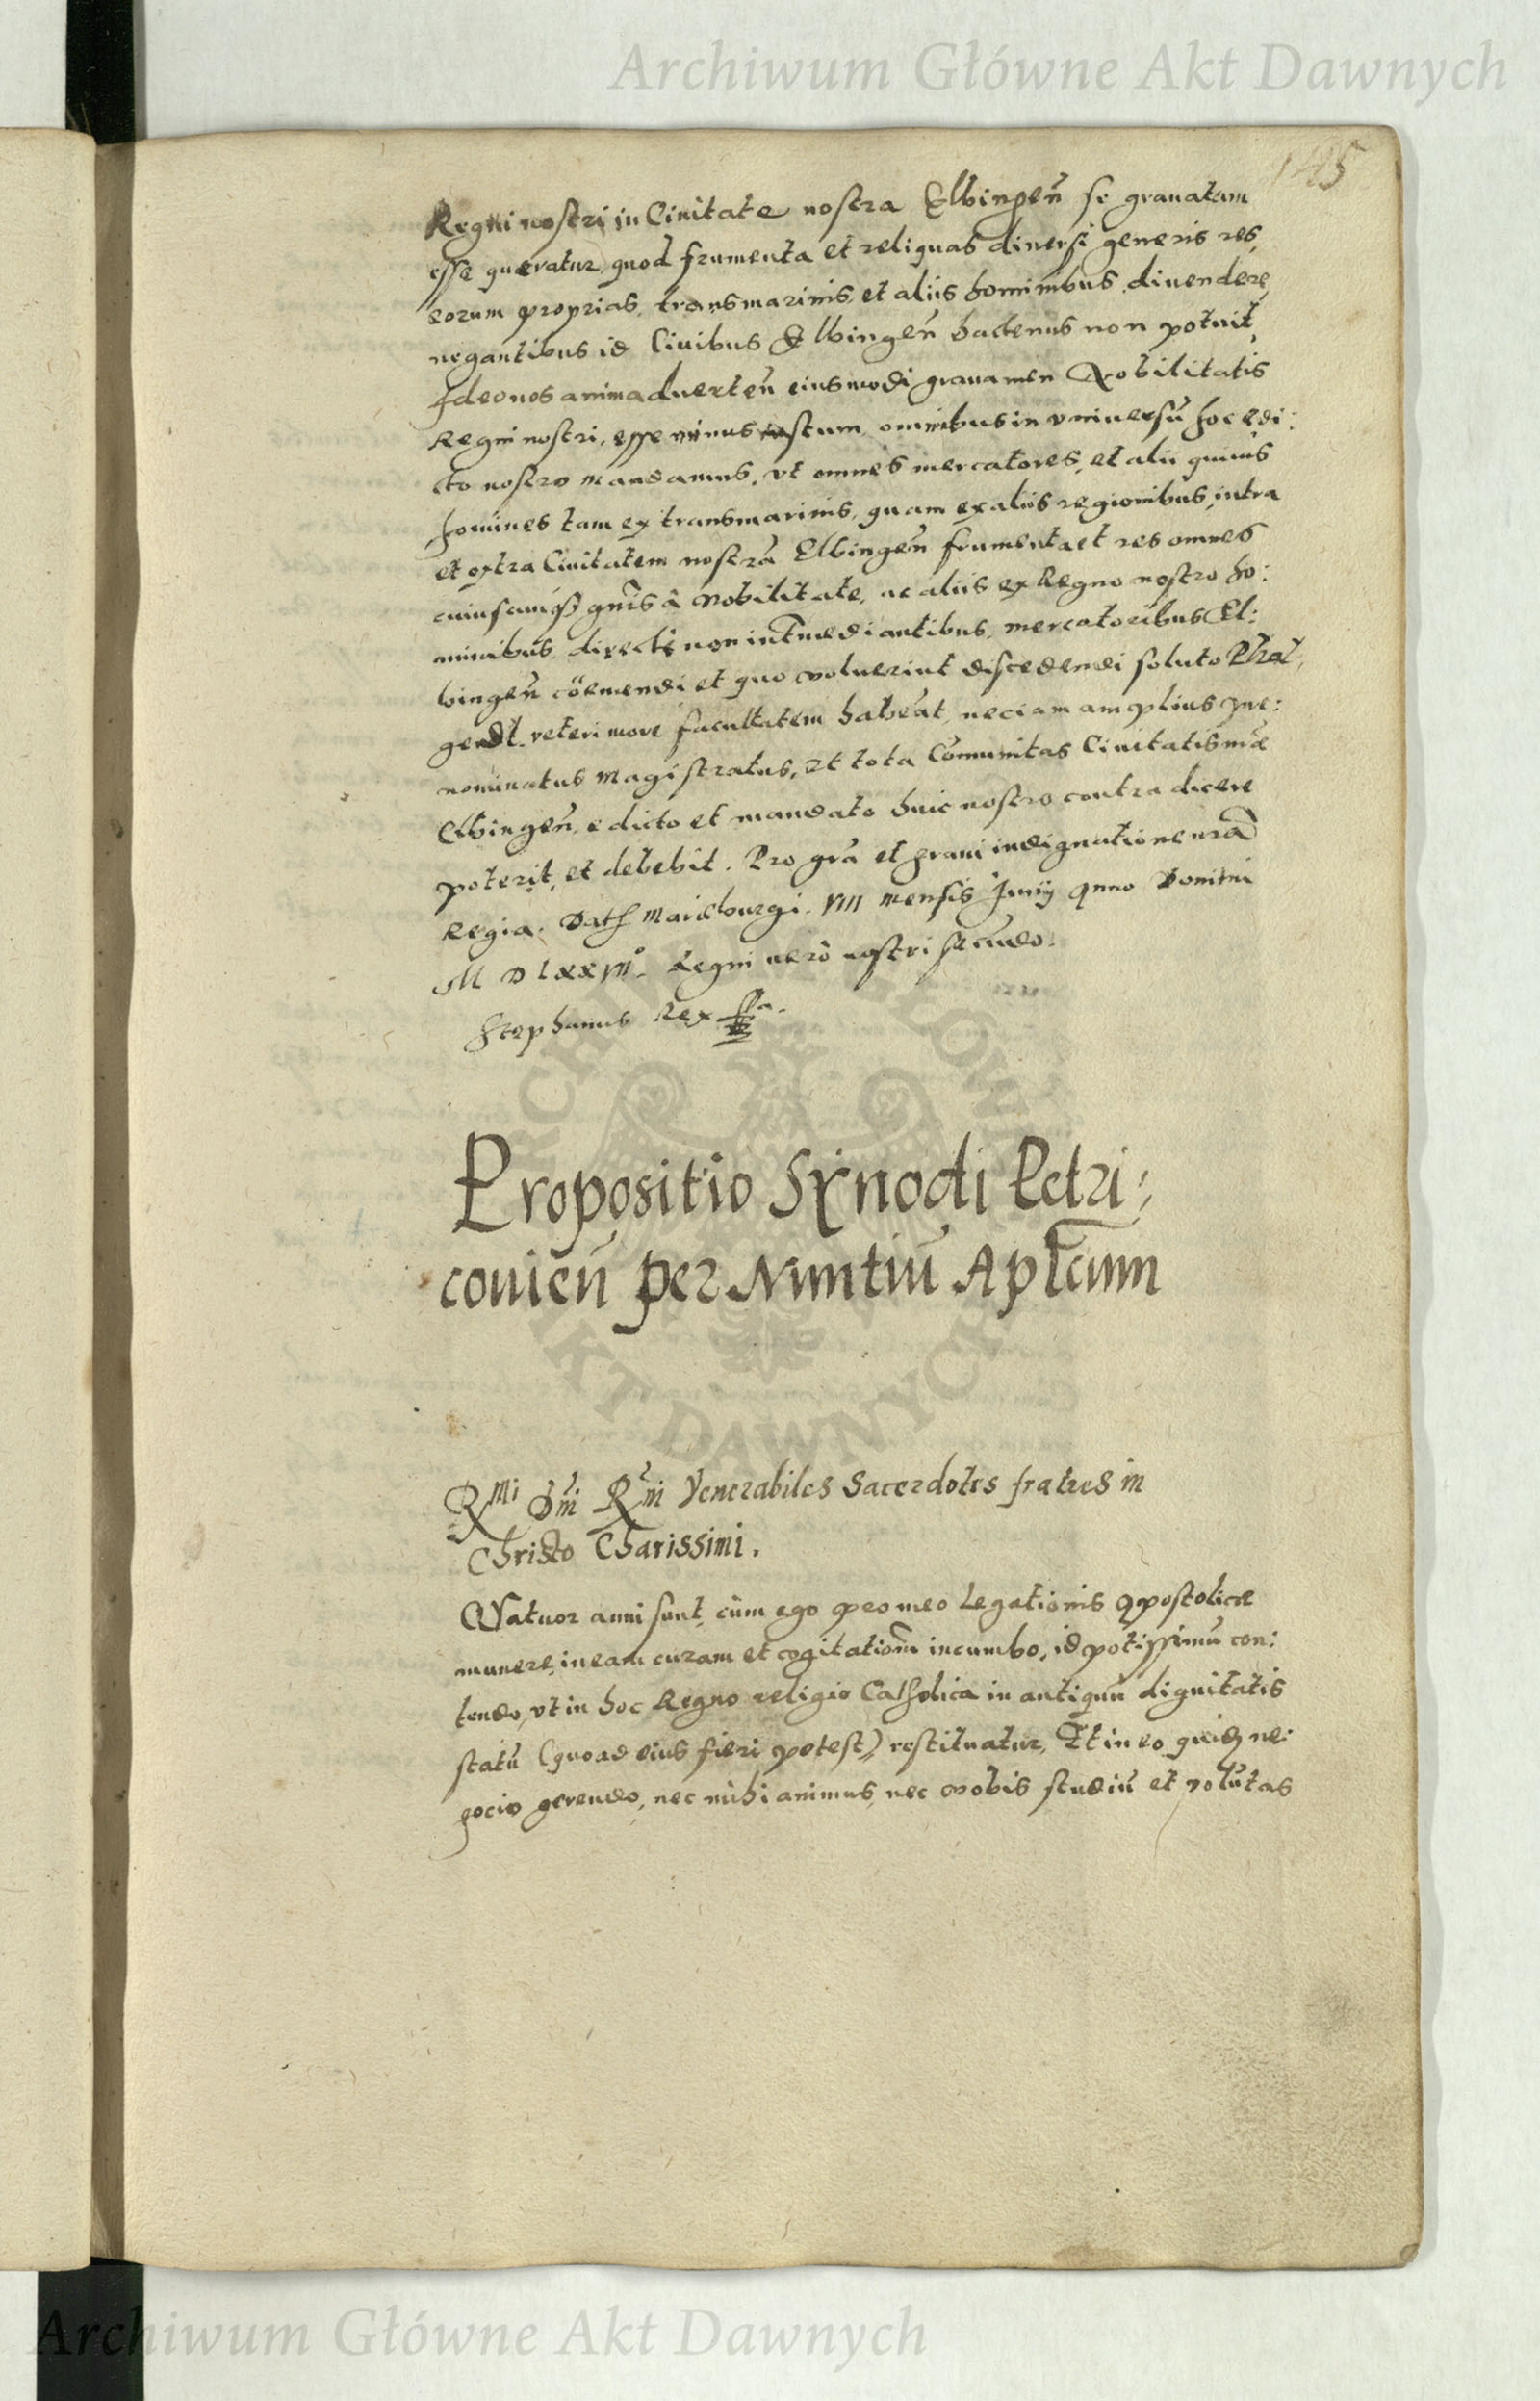 Archiwum Główne Akt Dawnych
145
Regni nostri in Ciuitate nostra Elbingeñ se grauatam
esse quæratur, quod frumenta et reliquas diuersi generis res
eorum proprias, transmarinis, et aliis hominibus diuendere,
negantibus id Ciuibus Elbingeñ hactenus non potuit,
Ideo nos animaduerteñ eiusmodi grauamen Nobilitatis
Regni nostri, esse minus iustum, omnibus in vniuersũ hoc edi:
cto nostro mandamus, vt omnes mercatores, et alii quiuis
homines tam ex transmarinis, quam ex aliis regionibus, intra
et extra Ciuitatem nostrã Elbingeñ frumenta et res omnes
cuiuscunq gñis à Nobilitate, ac aliis ex Regno nostro ho:
minibus, directè non intmediantibus, mercatoribus El:
bingeñ cöemendi et quo voluerint discedendi soluto Phal,
geldt. veteri more facultatem habeãt, nec iam amplius pre:
nominatus Magistratus, et tota Cõmunitas Ciuitatis nræ
Elbingeñ, edicto et mandato huic nostro contra dicere
poterit, et debebit. Pro grã et graui indignatione nrã
Regia. Dat Marieburgi. VIII mensis Junij Anno Domini
M D LXXVII°. Regni uerò nostri secũdo.
Stephanus Rex
Propositio Synodi Petri:
couieñ per Nuntiũ Aplcum
Rmi Dñi Rm Venerabiles Sacerdotes fratres in
Christo Charissimi.
QVatuor anni sunt, cùm ego pro meo Legationis Apostolicæ
munere, in eam curam et cogitationẽ incumbo, id potissimũ con:
tendo, vt in hoc Regno religio Catholica in antiquũ dignitatis
statũ (quoad eius fieri potest) restituatur, Et in eo quidẽ ne:
gocio gerendo, nec mihi animus, nec vobis studiũ et volũtas
ARCHIWUM GŁÓWNE
AKT DAWNYCH
Archiwum Główne Akt Dawnych